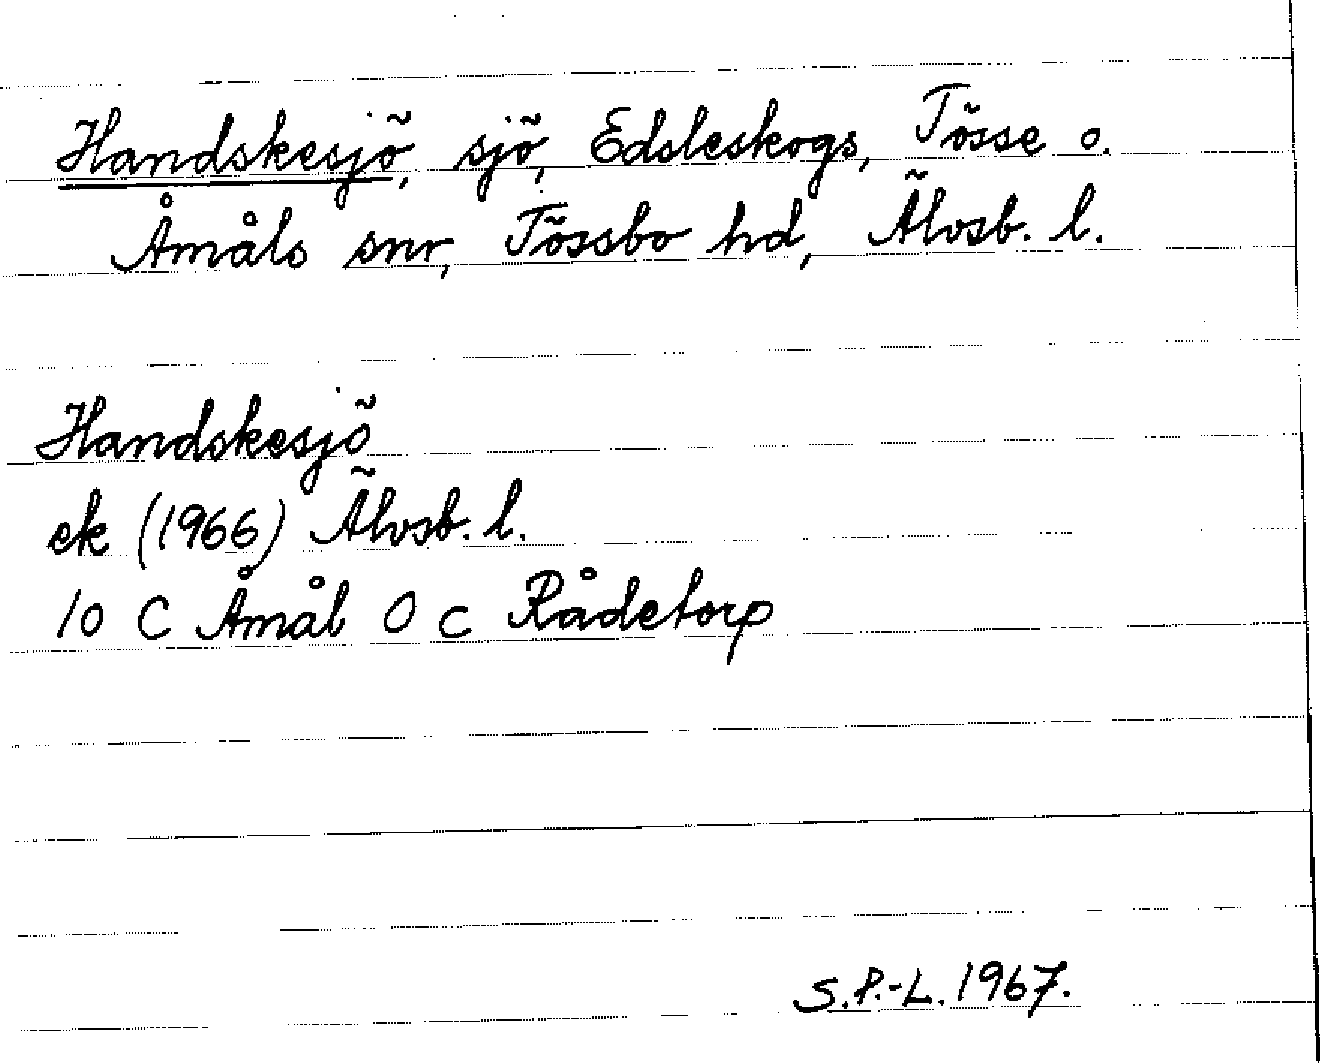 Handskesjö, sjö, Edsleskogs, Tösse o.
Åmåls snr, Tössbo hd, Älvsb. l.
Handskesjö
ek (1966) Älvsb. l.
10 C Åmål 0 c Rådetorp
S.P.-L. 1967.